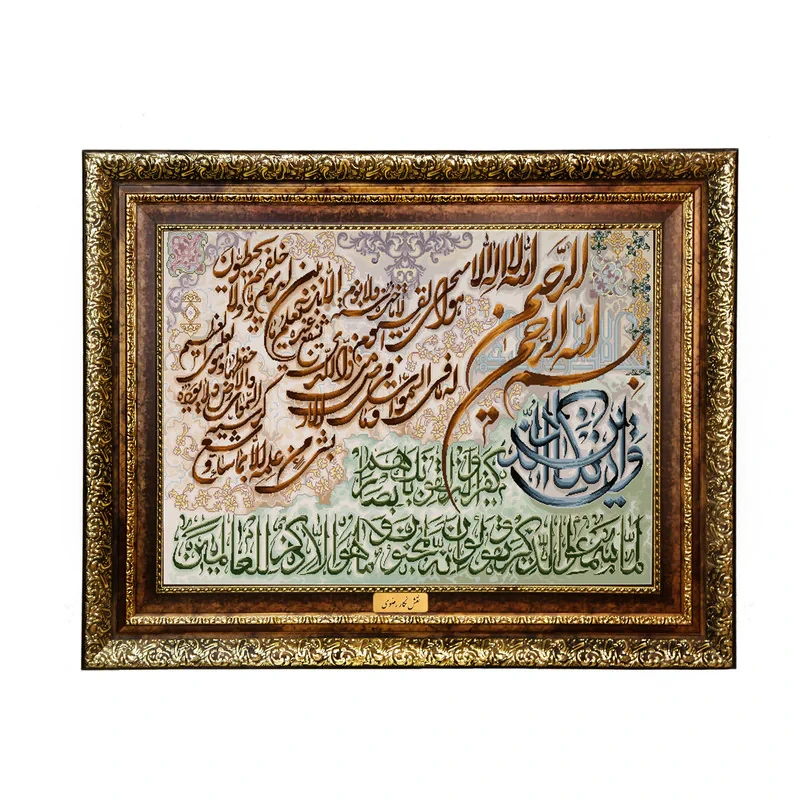 بسم الله الرحمن الرحیم
الله لا اله الا هو الحی القیوم
لا تاخذه سنة ولا نوم
له ما فی السموات وما فی الارض
من ذا الذی یشفع عنده الا باذنه
یعلم ما بین ایدیهم وما خلفهم ولا یحیطون
بشئ من علمه الا بما شاء وسع
کرسیه السموات والارض ولا یؤده
حفظهما وهو العلی العظیم
وان یکاد الذین
کفروا لیزلقونک بابصارهم
لما سمعوا الذکر ویقولون انه لمجنون وما هو الا ذکر للعالمین
نقش نگار رضوی